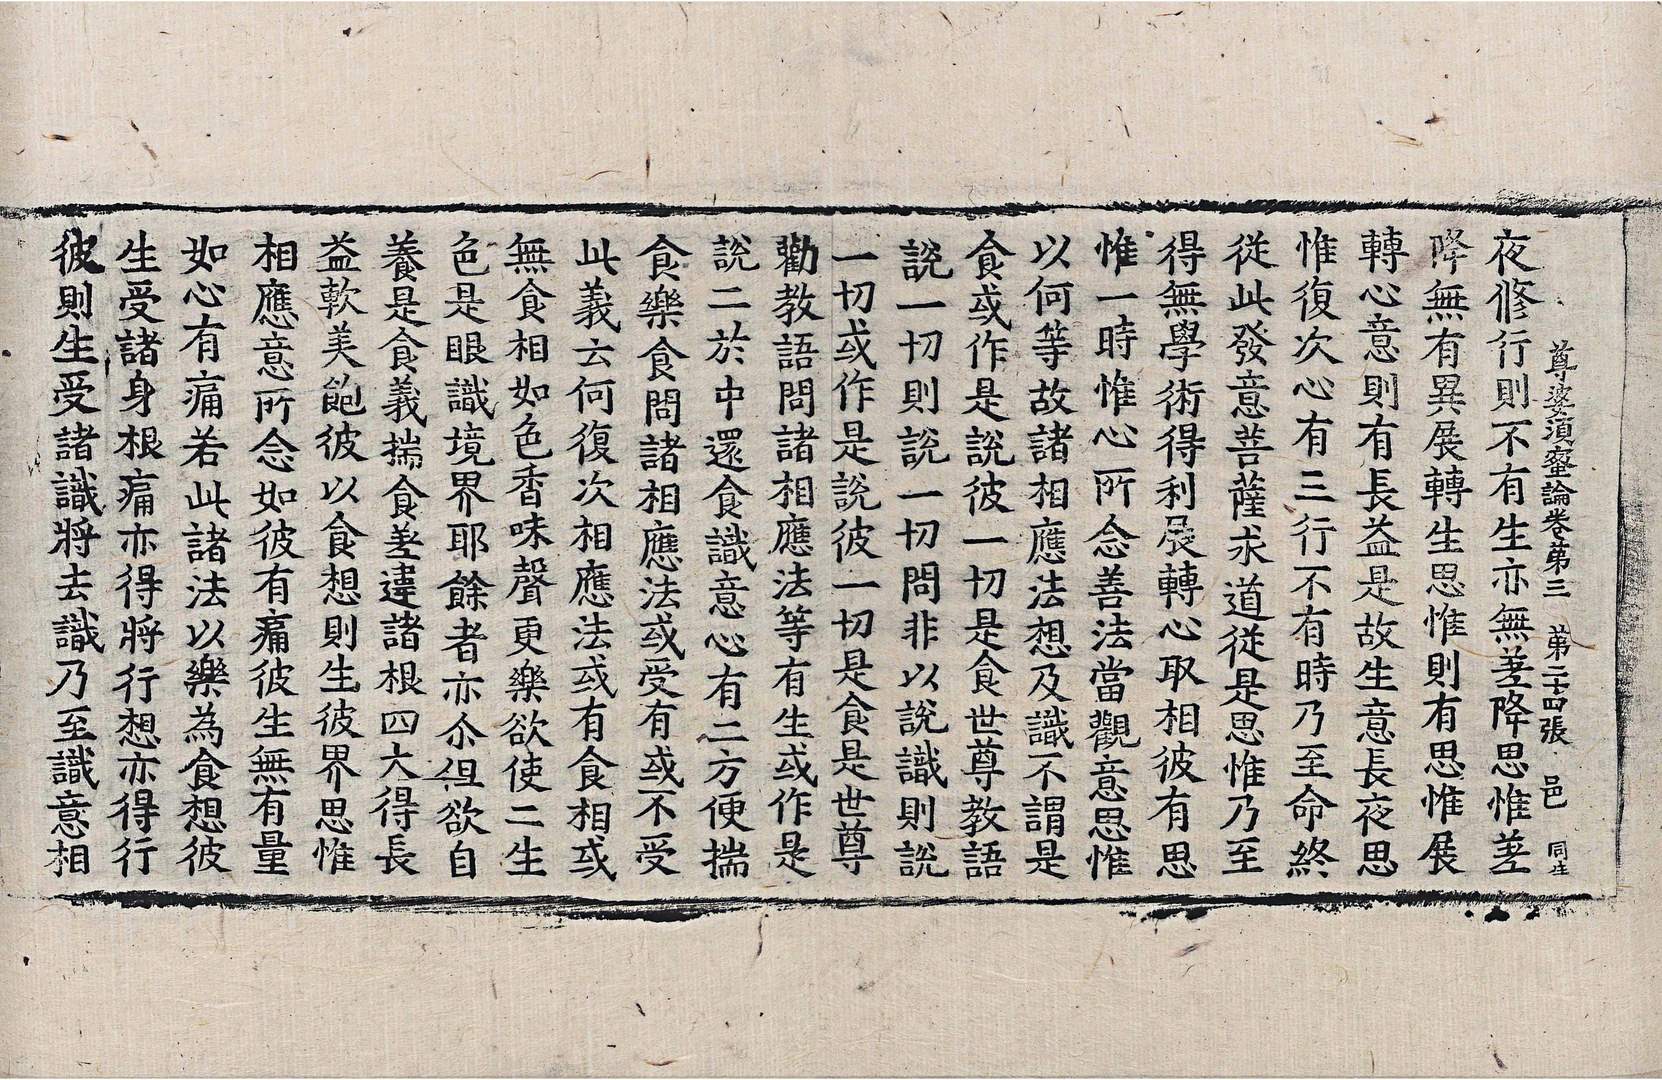 尊婆須蜜論卷第三　第二十四張　邑　同生
夜修行則不有生亦無差降思惟差
降無有異展轉生思惟則有思惟展
轉心意則有長益是故生意長夜思
惟復次心有三行不有時乃至命終
從此發意菩薩求道從是思惟乃至
得無學術得利展轉心取相彼有思
惟一時惟心所念善法當觀意思惟
以何等故諸相應法想及識不謂是
食或作是說彼一切是食世尊教語
說一切則說一切問非以說識則說
一切或作是說彼一切是食是世尊
勸教語問諸相應法等有生或作是
說二於中還食識意心有二方便揣
食樂食問諸相應法或受有或不受
此義云何復次相應法或有食相或
無食相如色香味聲更樂欲使二生
色是眼識境界耶餘者亦尒但欲自
養是食義揣食差違諸根四大得長
益軟美飽彼以食想則生彼界思惟
相應意所念如彼有痛彼生無有量
如心有痛若此諸法以樂為食想彼
生受諸身根痛亦得將行想亦得行
彼則生受諸識將去識乃至識意相